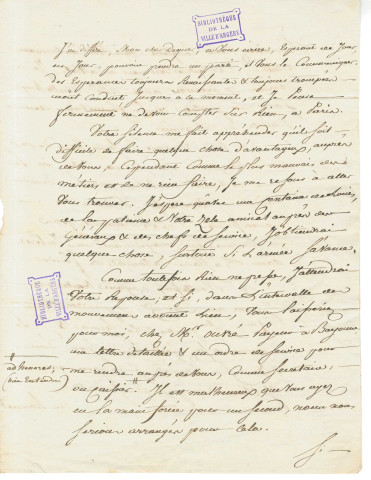 BIBLIOTHÈQUE
DE LA
VILLE D'ANGERS
J'ai différé, Mon cher Logue, à vous écrire, Espérant de Jour
en Jour, pouvoir prendre un parti, & vous le Communiquer.
des Espérances toujours Renaissantes & toujours trompées
m'ont conduit Jusque à ce moment, et Je pense
fermement ne devoir compter sur rien, à Paris.
Votre silence me fait appréhender qu'il soit
difficile de faire quelque chose d'avantageux auprès
de vous. Cependant Comme le plus mauvais des
métiers est de ne rien faire, Je me résous à aller
vous trouver. J'espère qu'avec une
de la patience & votre zèle amical auprès des
Généraux & des chefs de service, J'obtiendrai
quelque chose, surtout si L'armée s'avance.
Comme toutefois rien ne presse, J'attendrai
votre Réponse, et si, dans L'intervalle
mouvement avoient lieu, vous laisseriez
pour moi, chez Mr. Payeur à Bayonne
une lettre détaillée & un ordre de service pour
me rendre auprès de vous, comme Secrétaire,
ou caissier. Il est malheureux que vous ayez
eu la main forcée pour un second, nous nous
serions arrangés pour cela.
ad honores,
bien entendu
BIBLIOTHÈQUE
DE LA
VILLE D'ANGERS